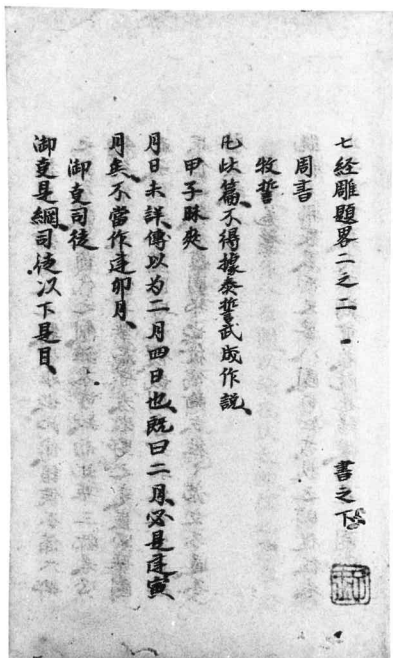 七経雕題畧二之二 書之下
周書
牧誓
凡此篇不得據泰誓武成作説
甲子昧爽
月日未詳傳以为二月四日也既曰二月必是建寅
月矣不當作建卯月
御事司徒
御事是綱司徒以下是目